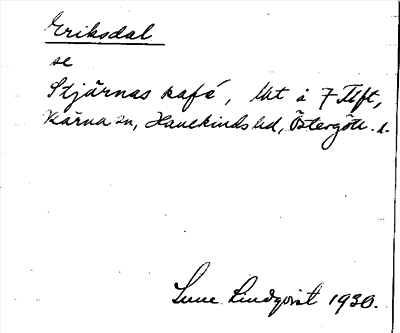 Eriksdal
se
Stjärnas kafé, lht å 7 Tlft,
Kärna sn, Hanekinds hd, Östergötl. l.
Sune Lindqvist 1930.